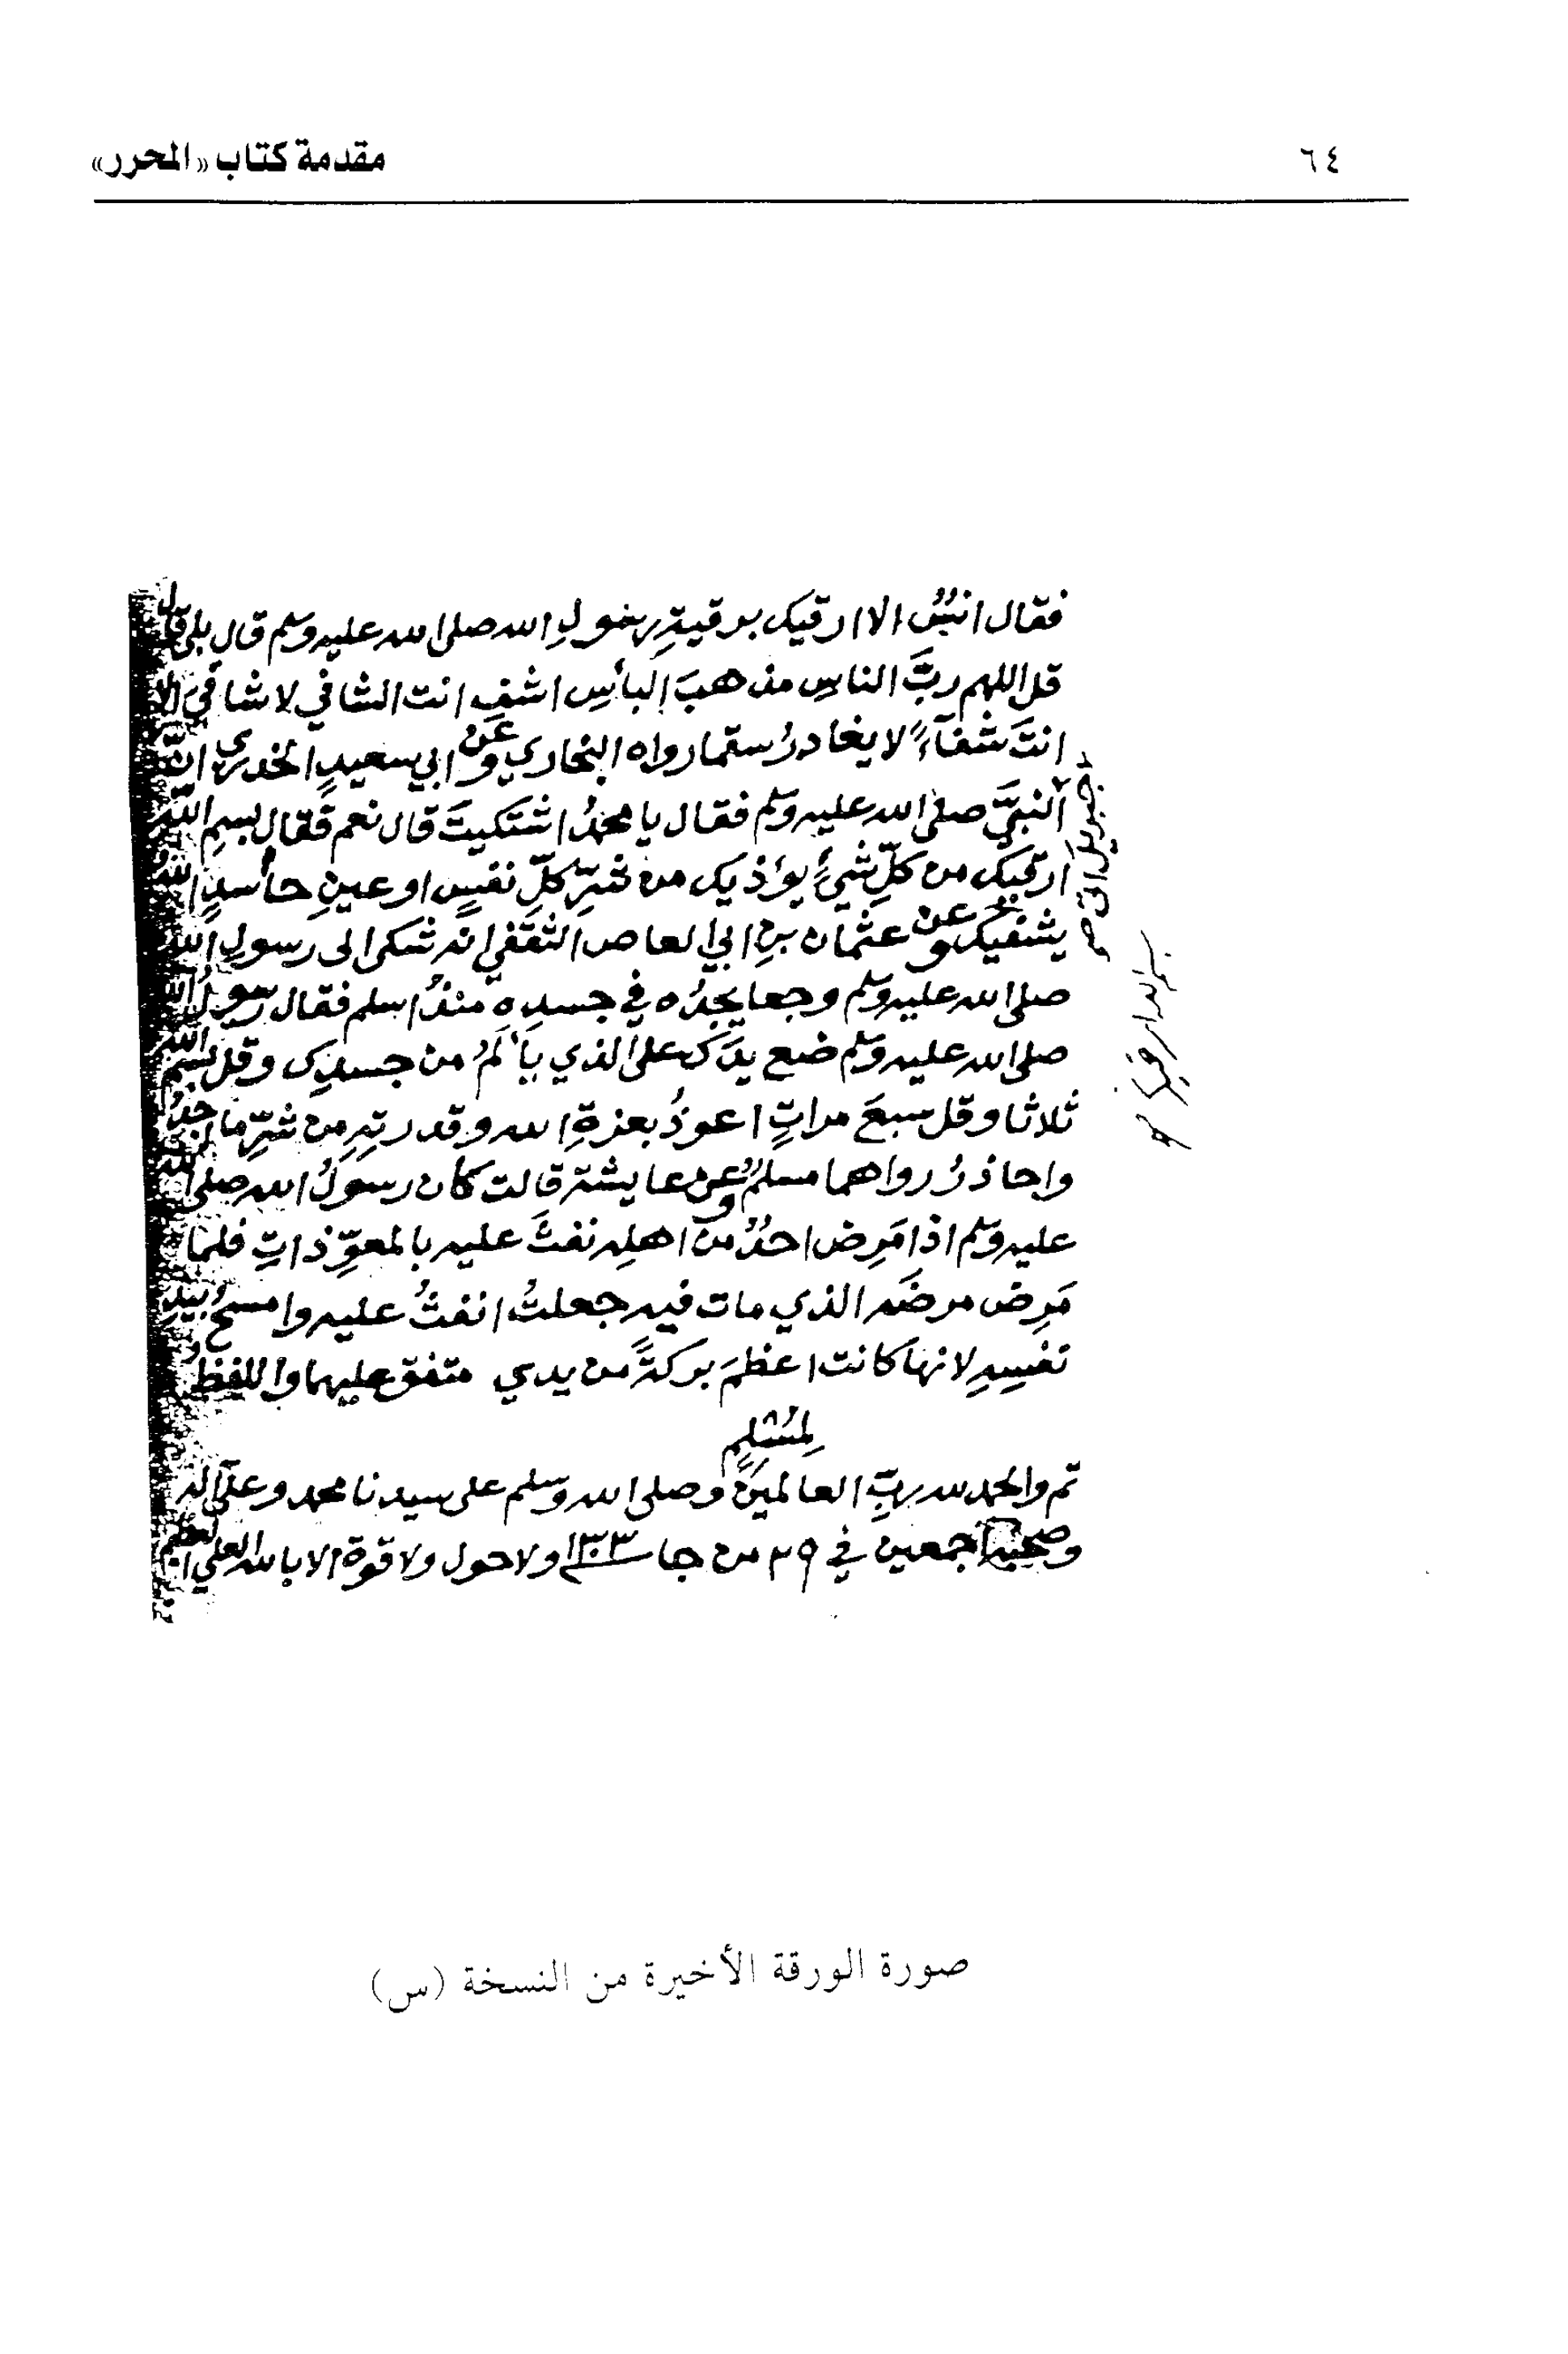 ٦٤
مقدمة كتاب «المحرر»
فقال انسٌ الا ارقيك برقيةِ رسولِ الله صلى الله عليه وسلم قال بلى قال
قل اللهم ربَّ الناسِ مذهبَ البأسِ اشفِ انت الشافي لا شافيَ الا
انتَ شفآءً لا يغادرُ سقما رواه البخاري وعن ابي سعيدٍ الخدري انَّ
جبريل اتى
النبيَّ صلى الله عليه وسلم فقال يا محمدُ اشتكيتَ قال نعم فقال بسمِ اللهِ
ارقيك من كلِّ شيءٍ يؤذيك من شرِّ كلِّ نفسٍ او عينِ حاسدٍ الله
يشفيك وعن عثمان بنِ ابي العاص الثقفي انه شكى الى رسولِ الله
صلى الله عليه وسلم وجعا يجدُه في جسدِهِ منذُ اسلم فقال رسولُ الله
صلى الله عليه وسلم ضع يدَك على الذي يألمُ من جسدِك وقل بسم الله
ثلاثا وقل سبعَ مراتٍ اعوذُ بعزةِ الله وقدرتِهِ من شرِّ ما اجدُ
واحاذرُ رواهما مسلمٌ وعن عايشة قالت كان رسولُ الله صلى الله
عليه وسلم اذا مَرِض احدٌ من اهلِه نفثَ عليه بالمعوِّذاتِ فلما
مَرِض مرضَه الذي مات فيه جعلتُ انفثُ عليه وامسحُ بيدِ
نفسِهِ لانها كانت اعظمَ بركةً من يدي متفق عليهما واللفظُ
لمسلمٍ
تم والحمد لله ربِّ العالمين وصلى الله وسلم على سيدنا محمد وعلى اله
وصحبه اجمعين في ٢٩ من جا ١٣٠٣ ولا حول ولا قوة الا بالله العلي العظيم
صورة الورقة الأخيرة من النسخة (س)